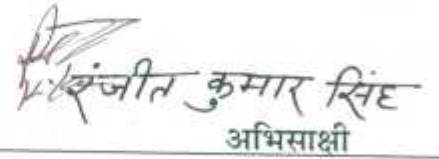 रंजीत कुमार सिंह
अभिसाक्षी